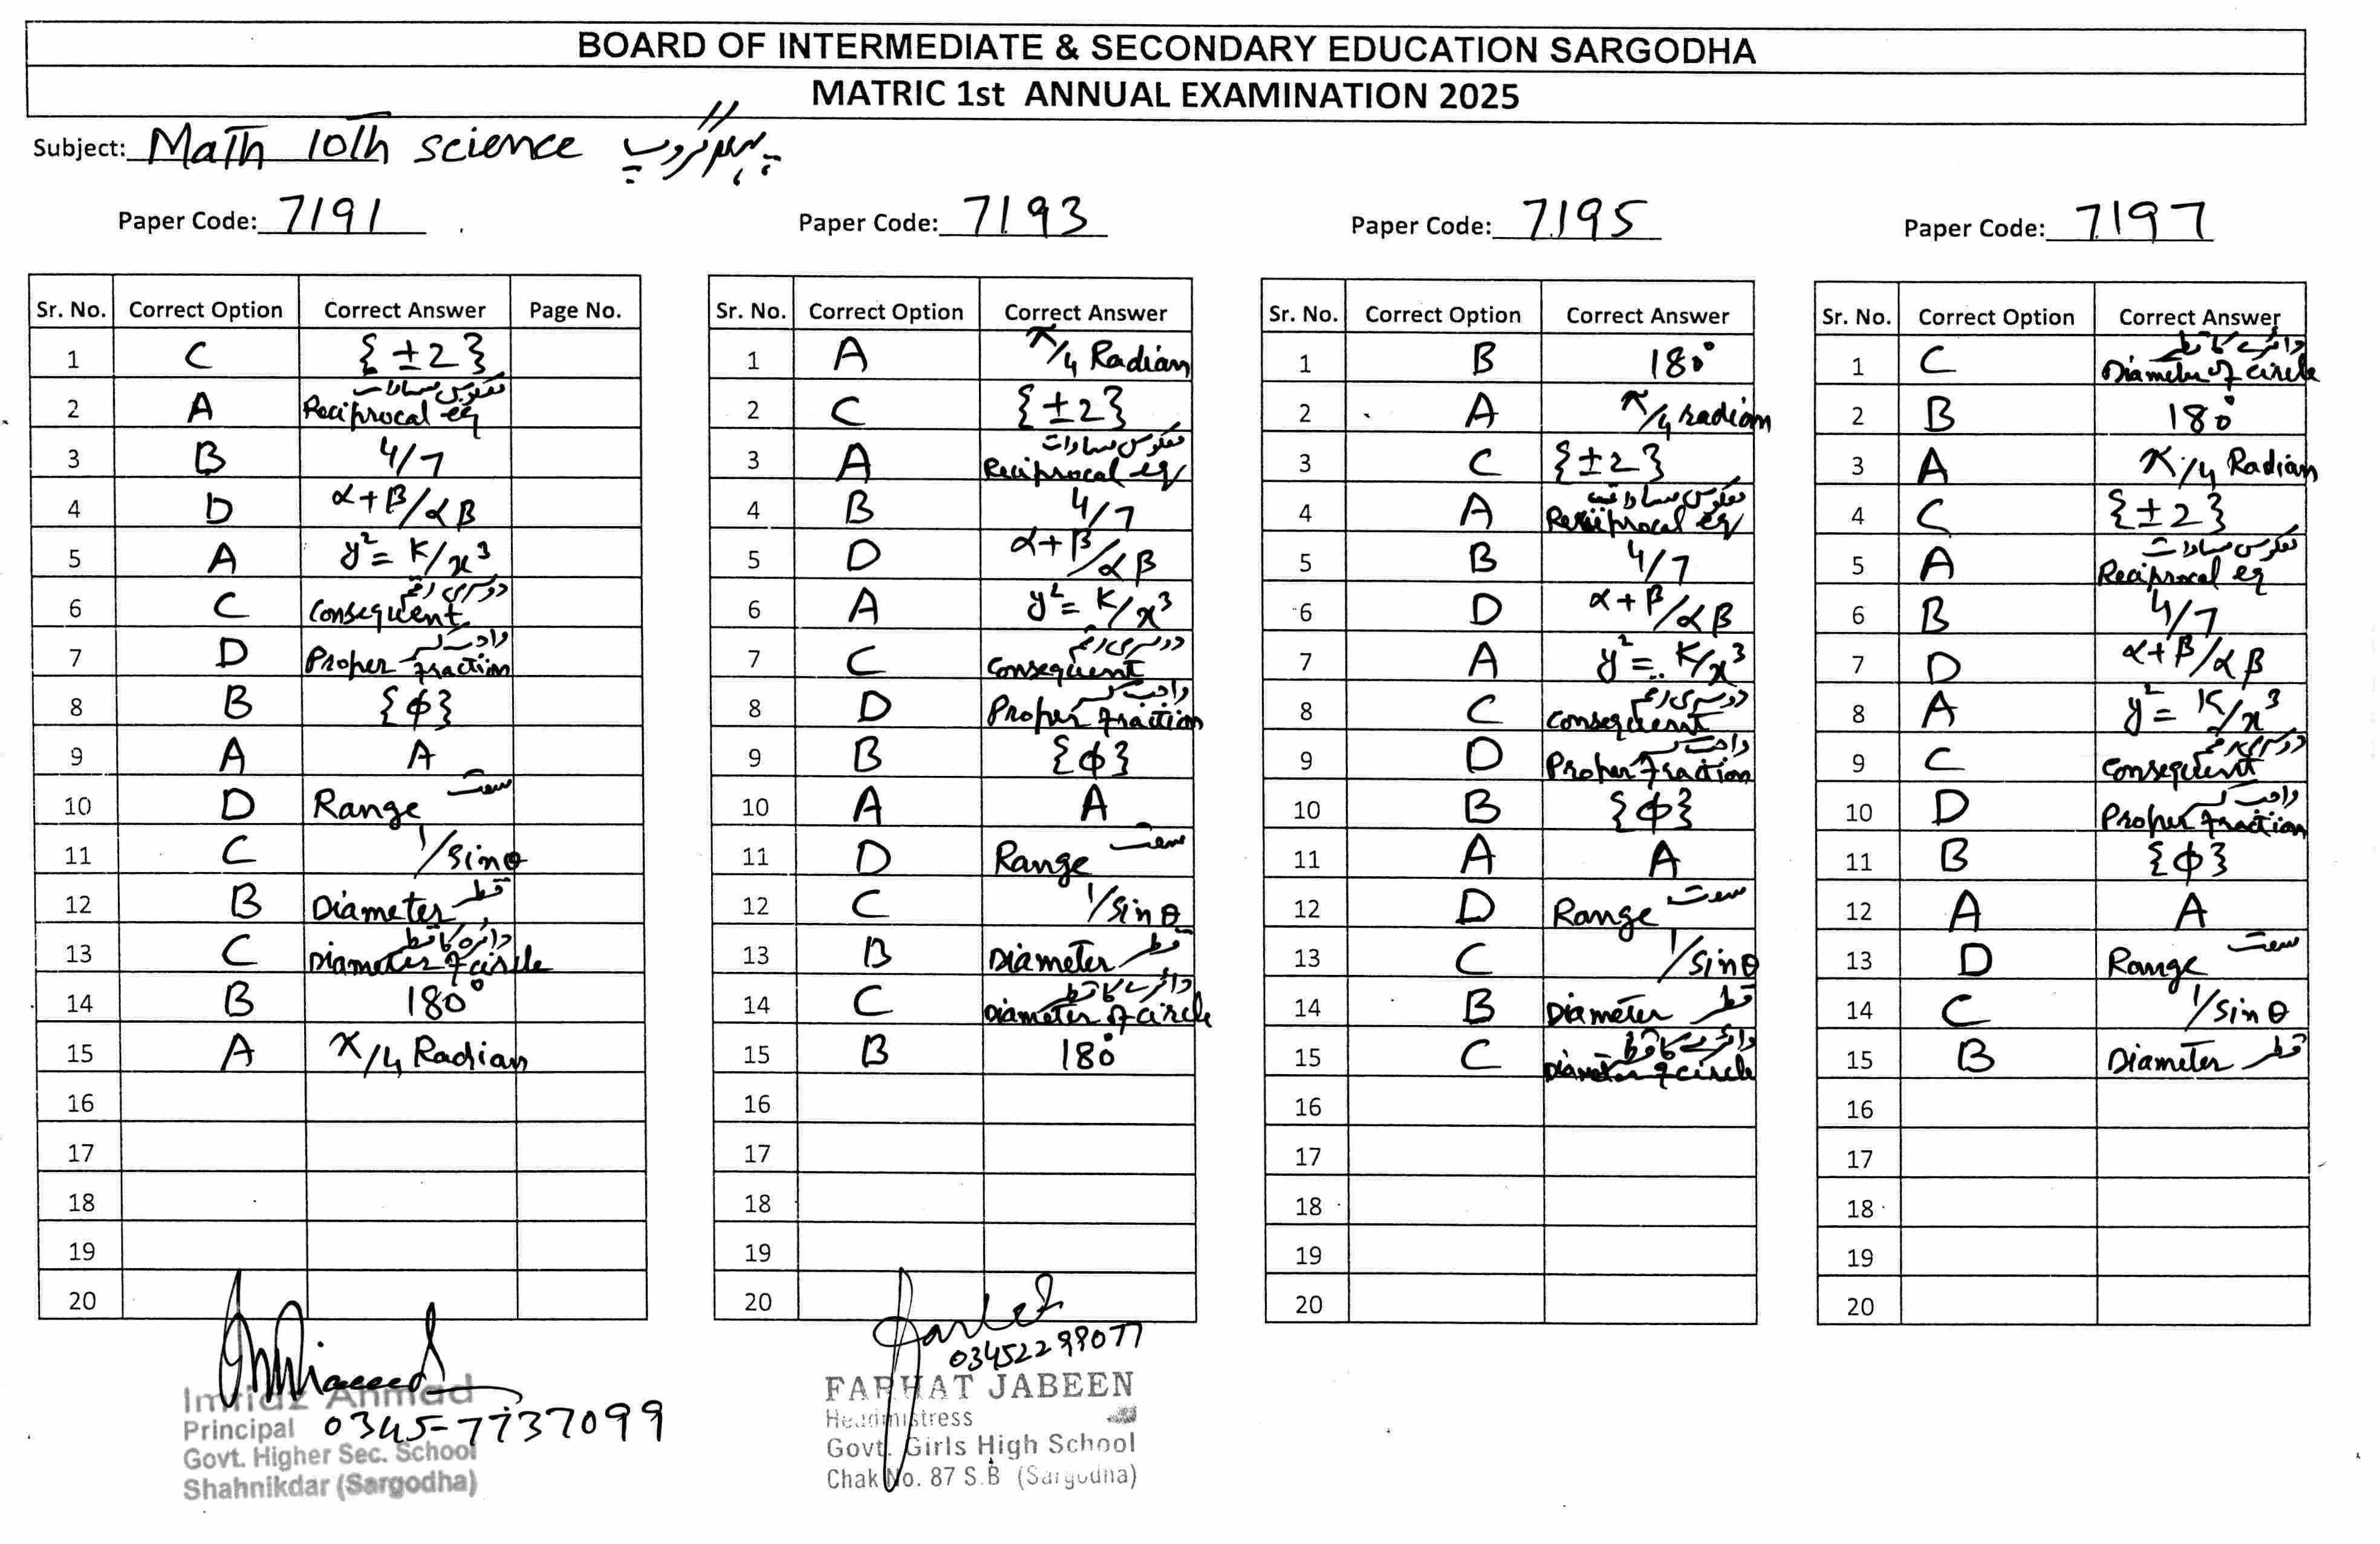 BOARD OF INTERMEDIATE & SECONDARY EDUCATION SARGODHA
MATRIC 1st ANNUAL EXAMINATION 2025
Subject: Math 10th science پہلا گروپ
Paper Code: 7191
Sr. No. Correct Option Correct Answer Page No.
1 C {±2}
2 A معکوس مساوات Reciprocal eq
3 B 4/7
4 D α+β/αβ
5 A y²= K/x³
6 C دوسری رقم Consequent
7 D واجب کسر Proper fraction
8 B {ϕ}
9 A A
10 D Range سعت
11 C 1/sinθ
12 B Diameter قطر
13 C دائرہ کا قطر Diameter of circle
14 B 180°
15 A π/4 Radian
16
17
18
19
20
Paper Code: 7193
Sr. No. Correct Option Correct Answer
1 A π/4 Radian
2 C {±2}
3 A معکوس مساوات Reciprocal eq
4 B 4/7
5 D α+β/αβ
6 A y²= K/x³
7 C دوسری رقم Consequent
8 D واجب کسر Proper fraction
9 B {ϕ}
10 A A
11 D Range سعت
12 C 1/sin θ
13 B Diameter قطر
14 C دائرے کا قطر Diameter of circle
15 B 180°
16
17
18
19
20
Paper Code: 7195
Sr. No. Correct Option Correct Answer
1 B 180°
2 A π/4 radian
3 C {±2}
4 A معکوس مساوات Reciprocal eq
5 B 4/7
6 D α+β/αβ
7 A y²= K/x³
8 C دوسری رقم Consequent
9 D واجب کسر Proper fraction
10 B {ϕ}
11 A A
12 D Range سعت
13 C 1/sinθ
14 B Diameter قطر
15 C دائرے کا قطر Diameter of circle
16
17
18
19
20
Paper Code: 7197
Sr. No. Correct Option Correct Answer
1 C دائرے کا قطر Diameter of circle
2 B 180°
3 A π/4 Radian
4 C {±2}
5 A معکوس مساوات Reciprocal eq
6 B 4/7
7 D α+β/αβ
8 A y²= K/x³
9 C دوسری رقم Consequent
10 D واجب کسر Proper fraction
11 B {ϕ}
12 A A
13 D Range سعت
14 C 1/sin θ
15 B Diameter قطر
16
17
18
19
20
Imtiaz Ahmad
Principal 0345-7737099
Govt. Higher Sec. School
Shahnikdar (Sargodha)
03452299077
FARHAT JABEEN
Headmistress
Govt. Girls High School
Chak No. 87 S.B (Sargodha)